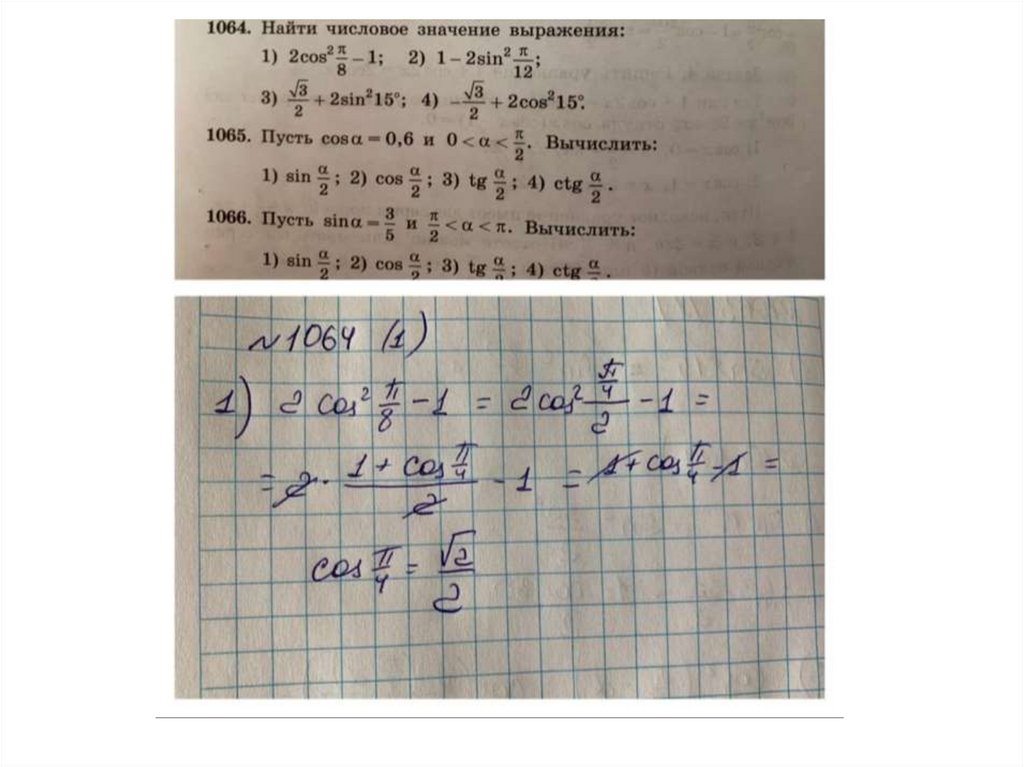 1064. Найти числовое значение выражения:
1) 2cos² π/8 – 1; 2) 1 – 2sin² π/12;
3) √3/2 + 2sin²15°; 4) –√3/2 + 2cos²15°.
1065. Пусть cosα = 0,6 и 0 < α < π/2. Вычислить:
1) sin α/2; 2) cos α/2; 3) tg α/2; 4) ctg α/2.
1066. Пусть sinα = 3/5 и π/2 < α < π. Вычислить:
1) sin α/2; 2) cos α/2; 3) tg α/2; 4) ctg α/2.
№1064 (1)
1) 2 cos² π/8 – 1 = 2 cos² (π/4)/2 – 1 =
= 2 · (1 + cos π/4)/2 – 1 = 1 + cos π/4 – 1 =
cos π/4 = √2/2